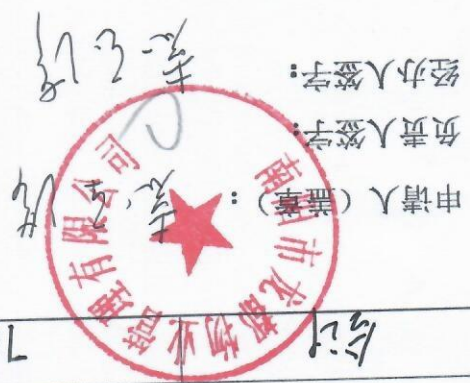 合计 7
申请人（盖章）：
负责人签字：
经办人签字：
阳市龙都物业管理有限公司